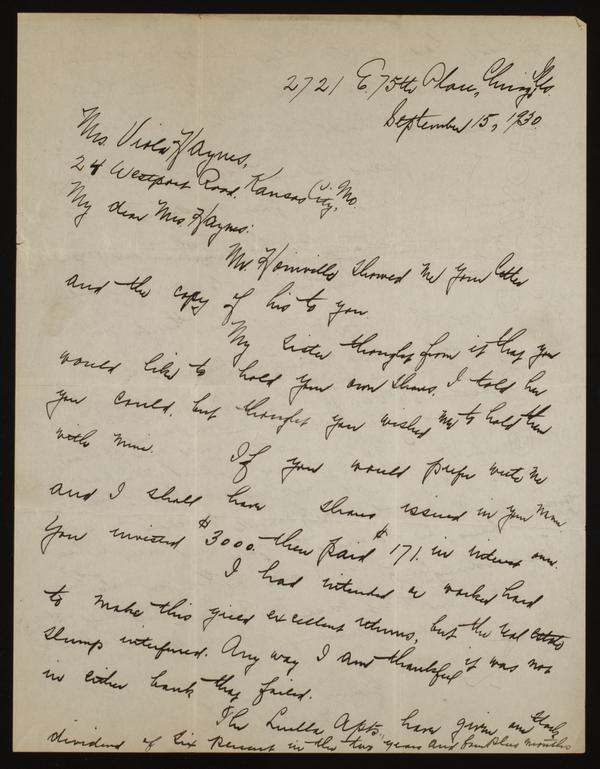 2721 E. 75th Place, Chicago, Ills.
September 15, 1930.
Mrs. Viola Haynes,
24 Westport Road, Kansas City, Mo.
My dear Mrs. Haynes:
Mr. showed me your letter
and the copy of his to you.
My sister thought from it that you
would like to hold your own shares. I told her
you could, but thought you wished me to hold them
with mine.
If you would prefer write me
and I shall have shares issued in your name.
You invested $3000. then paid $171. in interest
I had intended or worked hard
to make this yield excellent returns, but the real estate
slump interfered. Any way I am thankful it was not
in either bank that failed.
The Luella Apts. have given one
dividend of six percent in the two years and four plus months